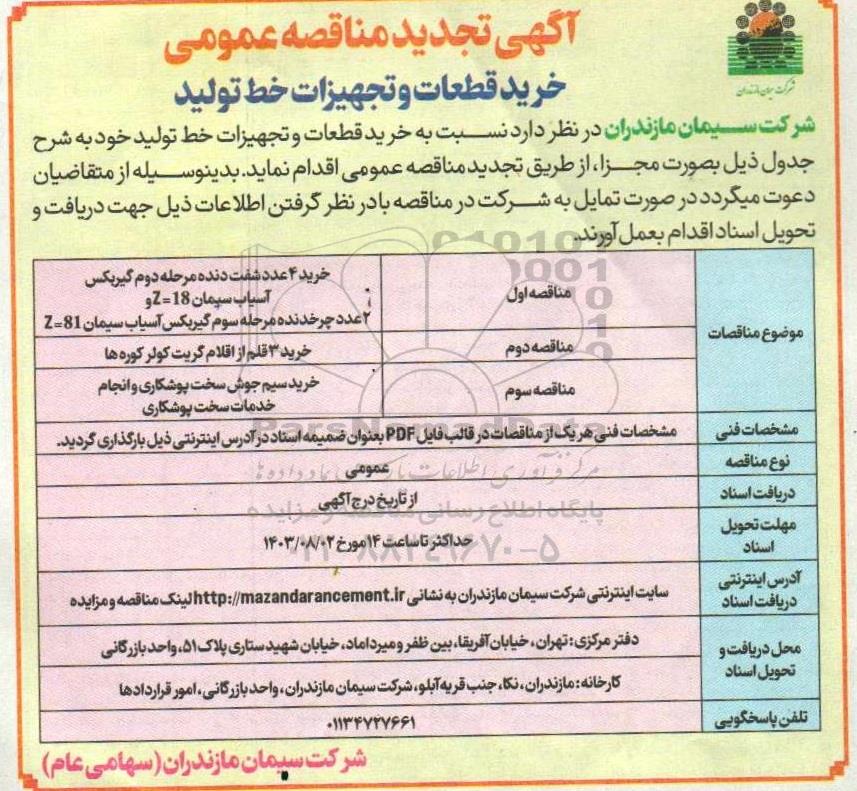 آگهی تجدید مناقصه عمومی
خرید قطعات و تجهیزات خط تولید
شرکت سیمان مازندران
شرکت سیمان مازندران در نظر دارد نسبت به خرید قطعات و تجهیزات خط تولید خود به شرح
جدول ذیل بصورت مجزا، از طریق تجدید مناقصه عمومی اقدام نماید. بدینوسیله از متقاضیان
دعوت میگردد در صورت تمایل به شرکت در مناقصه با در نظر گرفتن اطلاعات ذیل جهت دریافت و
تحویل اسناد اقدام بعمل آورند.
موضوع مناقصات
مناقصه اول
خرید ۴ عدد شفت دنده مرحله دوم گیربکس
آسیاب سیمان Z=18 و
۲ عدد چرخدنده مرحله سوم گیربکس آسیاب سیمان Z=81
مناقصه دوم
خرید ۳ قلم از اقلام گریت کولر کوره ها
مناقصه سوم
خرید سیم جوش سخت پوشکاری و انجام
خدمات سخت پوشکاری
مشخصات فنی
مشخصات فنی هر یک از مناقصات در قالب فایل PDF بعنوان ضمیمه اسناد در آدرس اینترنتی ذیل بارگذاری گردید.
نوع مناقصه
عمومی
دریافت اسناد
از تاریخ درج آگهی
مهلت تحویل
اسناد
حداکثر تا ساعت ۱۴ مورخ ۱۴۰۳/۰۸/۰۲
آدرس اینترنتی
دریافت اسناد
سایت اینترنتی شرکت سیمان مازندران به نشانی http://mazandarancement.ir لینک مناقصه و مزایده
محل دریافت و
تحویل اسناد
دفتر مرکزی: تهران، خیابان آفریقا، بین ظفر و میرداماد، خیابان شهید ستاری پلاک ۵۱، واحد بازرگانی
کارخانه: مازندران، نکا، جنب قریه آبلو، شرکت سیمان مازندران، واحد بازرگانی، امور قراردادها
تلفن پاسخگویی
۰۱۱۳۴۷۲۷۶۶۱
شرکت سیمان مازندران (سهامی عام)
ParsNamadData
پایگاه اطلاع رسانی مناقصه و مزایده